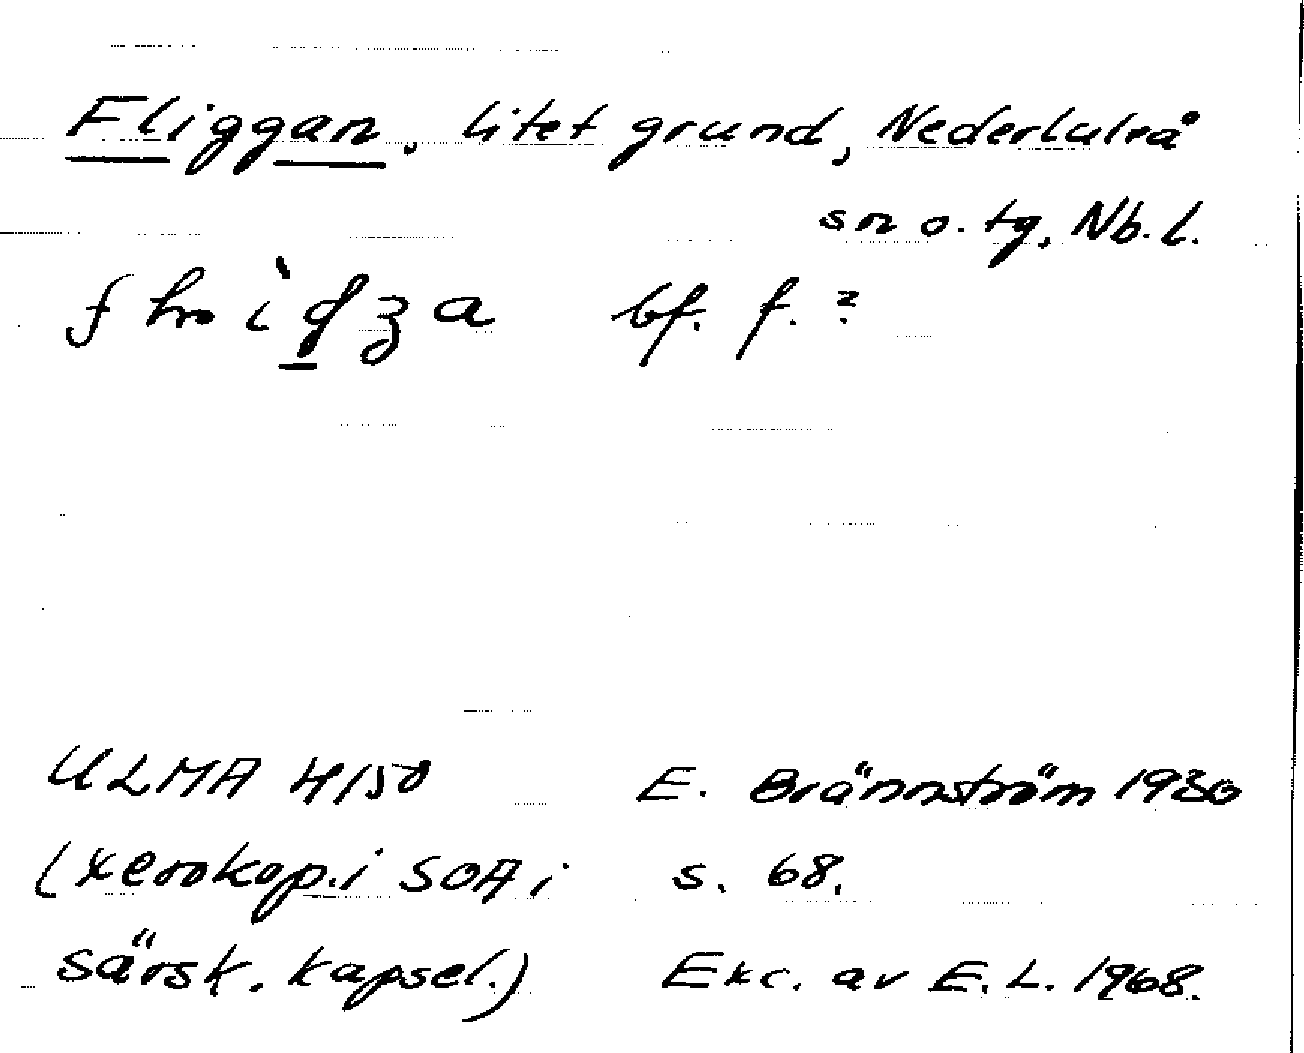 Fliggan. litet grund, Nederluleå
sn o. tg, Nb. l.
bf. f. ?
ULMA 4150
E. Brännström 1930
(xerokop. i SOA i
s. 68.
särsk. kapsel.)
Exc. av E. L. 1968.